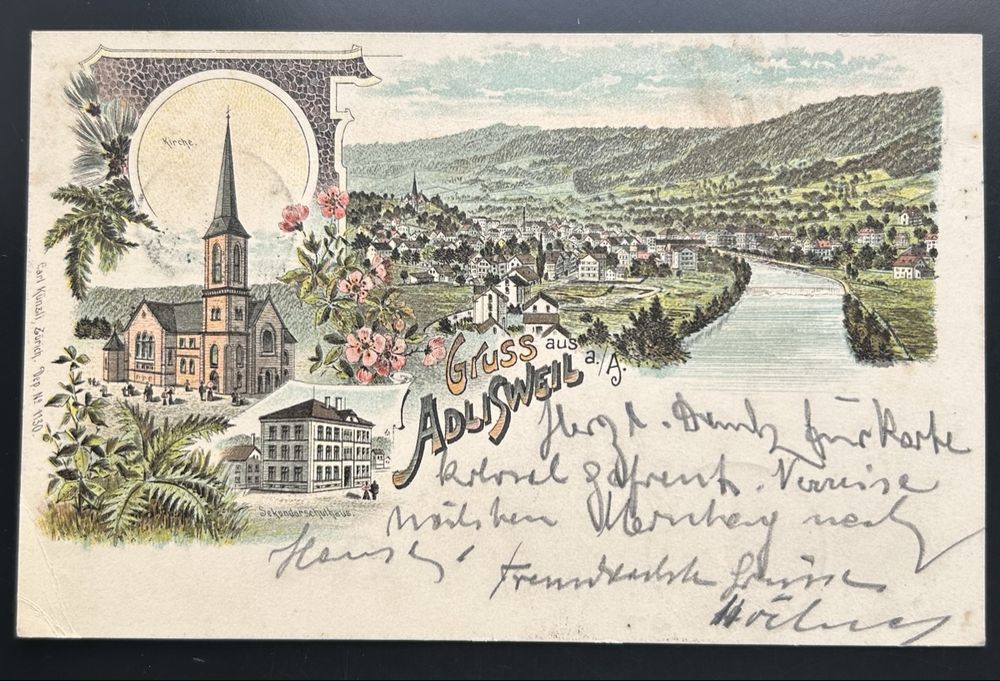 Kirche.
Carl Künzli, Zürich. Dep. No 1130
Gruss aus
Adlisweil a./A.
Sekundarschulhaus.
Herzl. Dank für Karte
kolosal gefreut. Verreise
nach
Hause.
Freundschtl. Grüsse